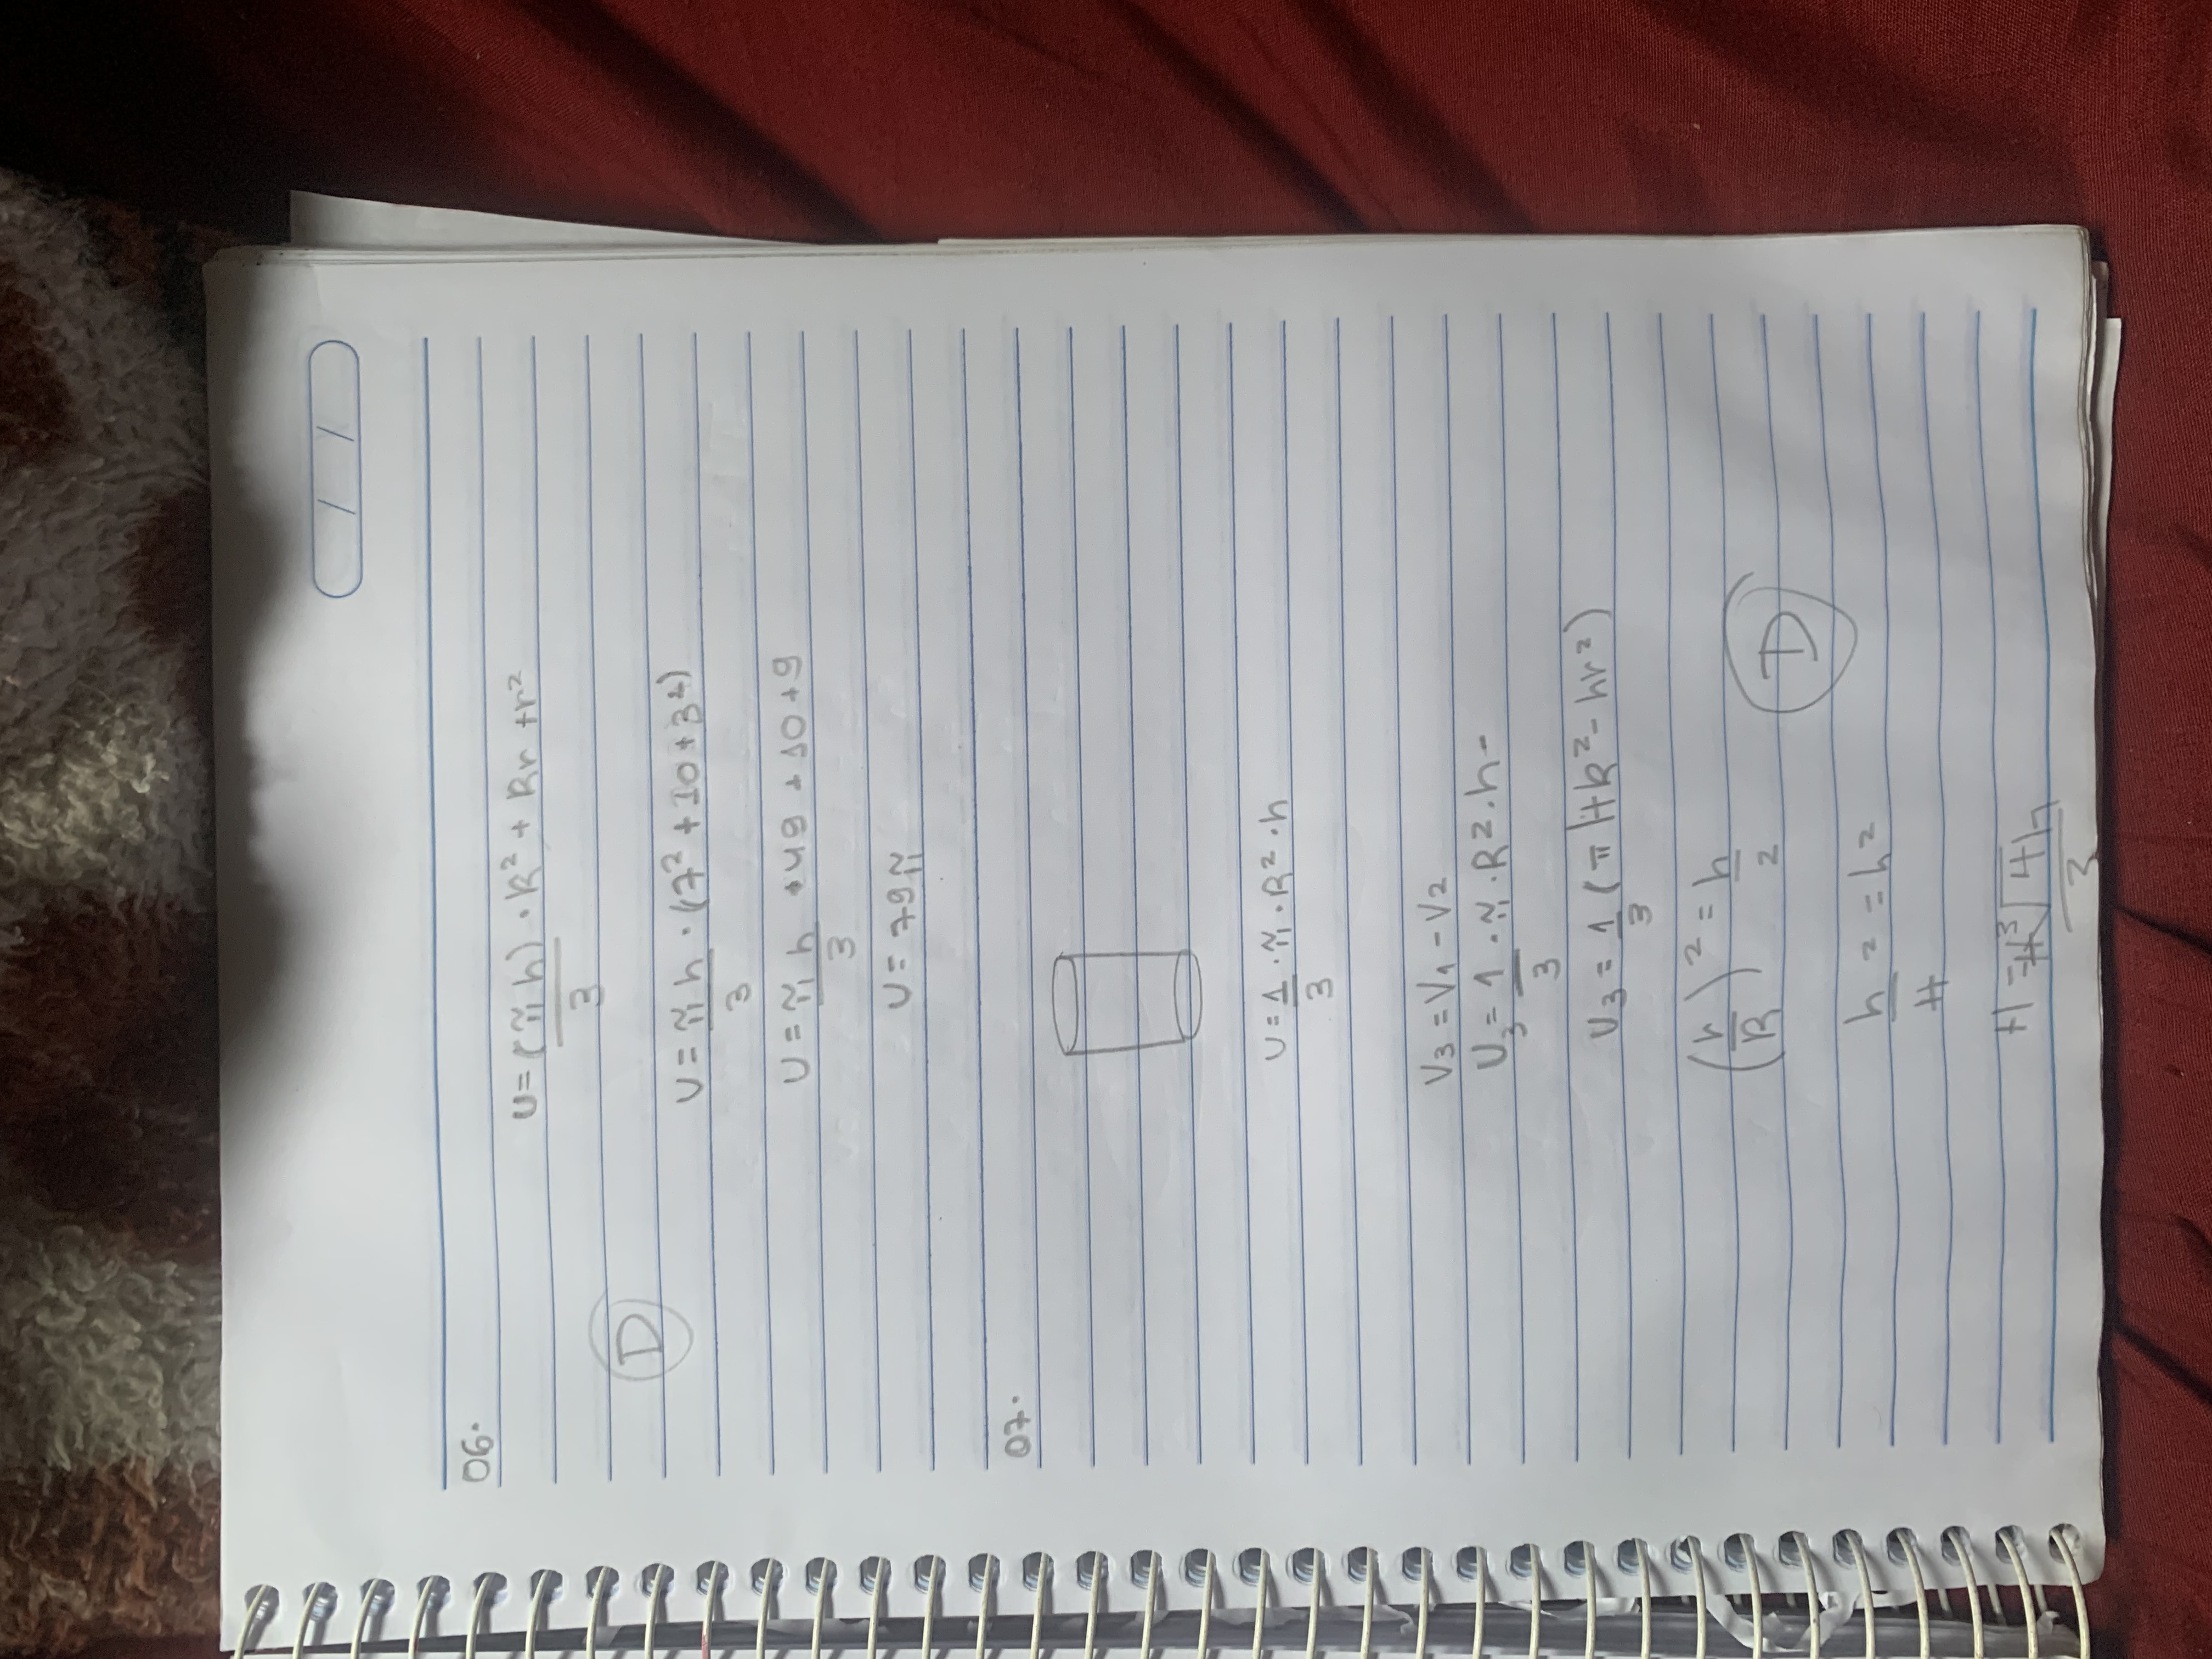 / /
06.
U = (π h) . R² + Rr + r²
3
D
V = π h . (7² + 10 + 3²)
3
U = π h . 49 + 10 + 9
3
U = 79 π
07.
U = 1 . π . R² . h
3
V3 = V1 - V2
U3 = 1 . π . R² . h -
3
U3 = 1 (π HR² - hr²)
3
(r/R)² = h
2
D
h ² = h²
H
H = ³√4h
3